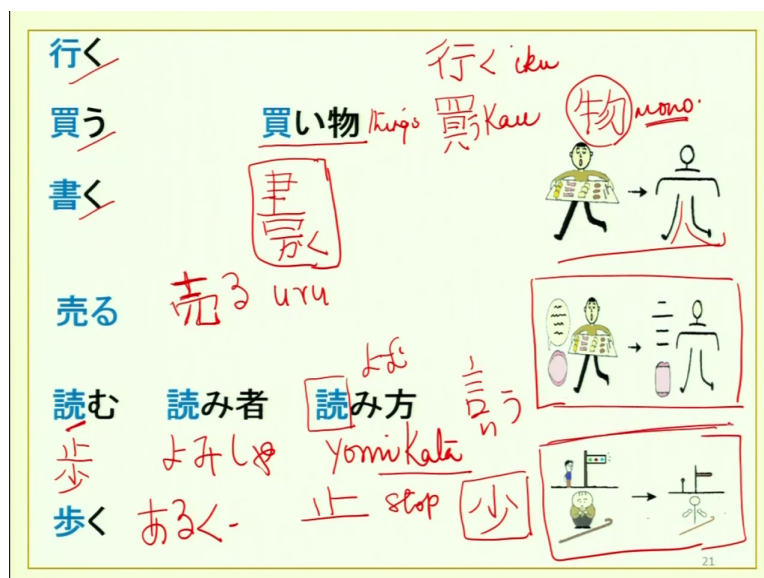 行く 行く iku
買う 買い物 things 買 Kau 物 mono.
書く 書く
売る 売る uru
よむ
読む 読み者 読み方 言う
歩 よみしゃ yomi Kata
歩く あるく- 止 stop 少
21